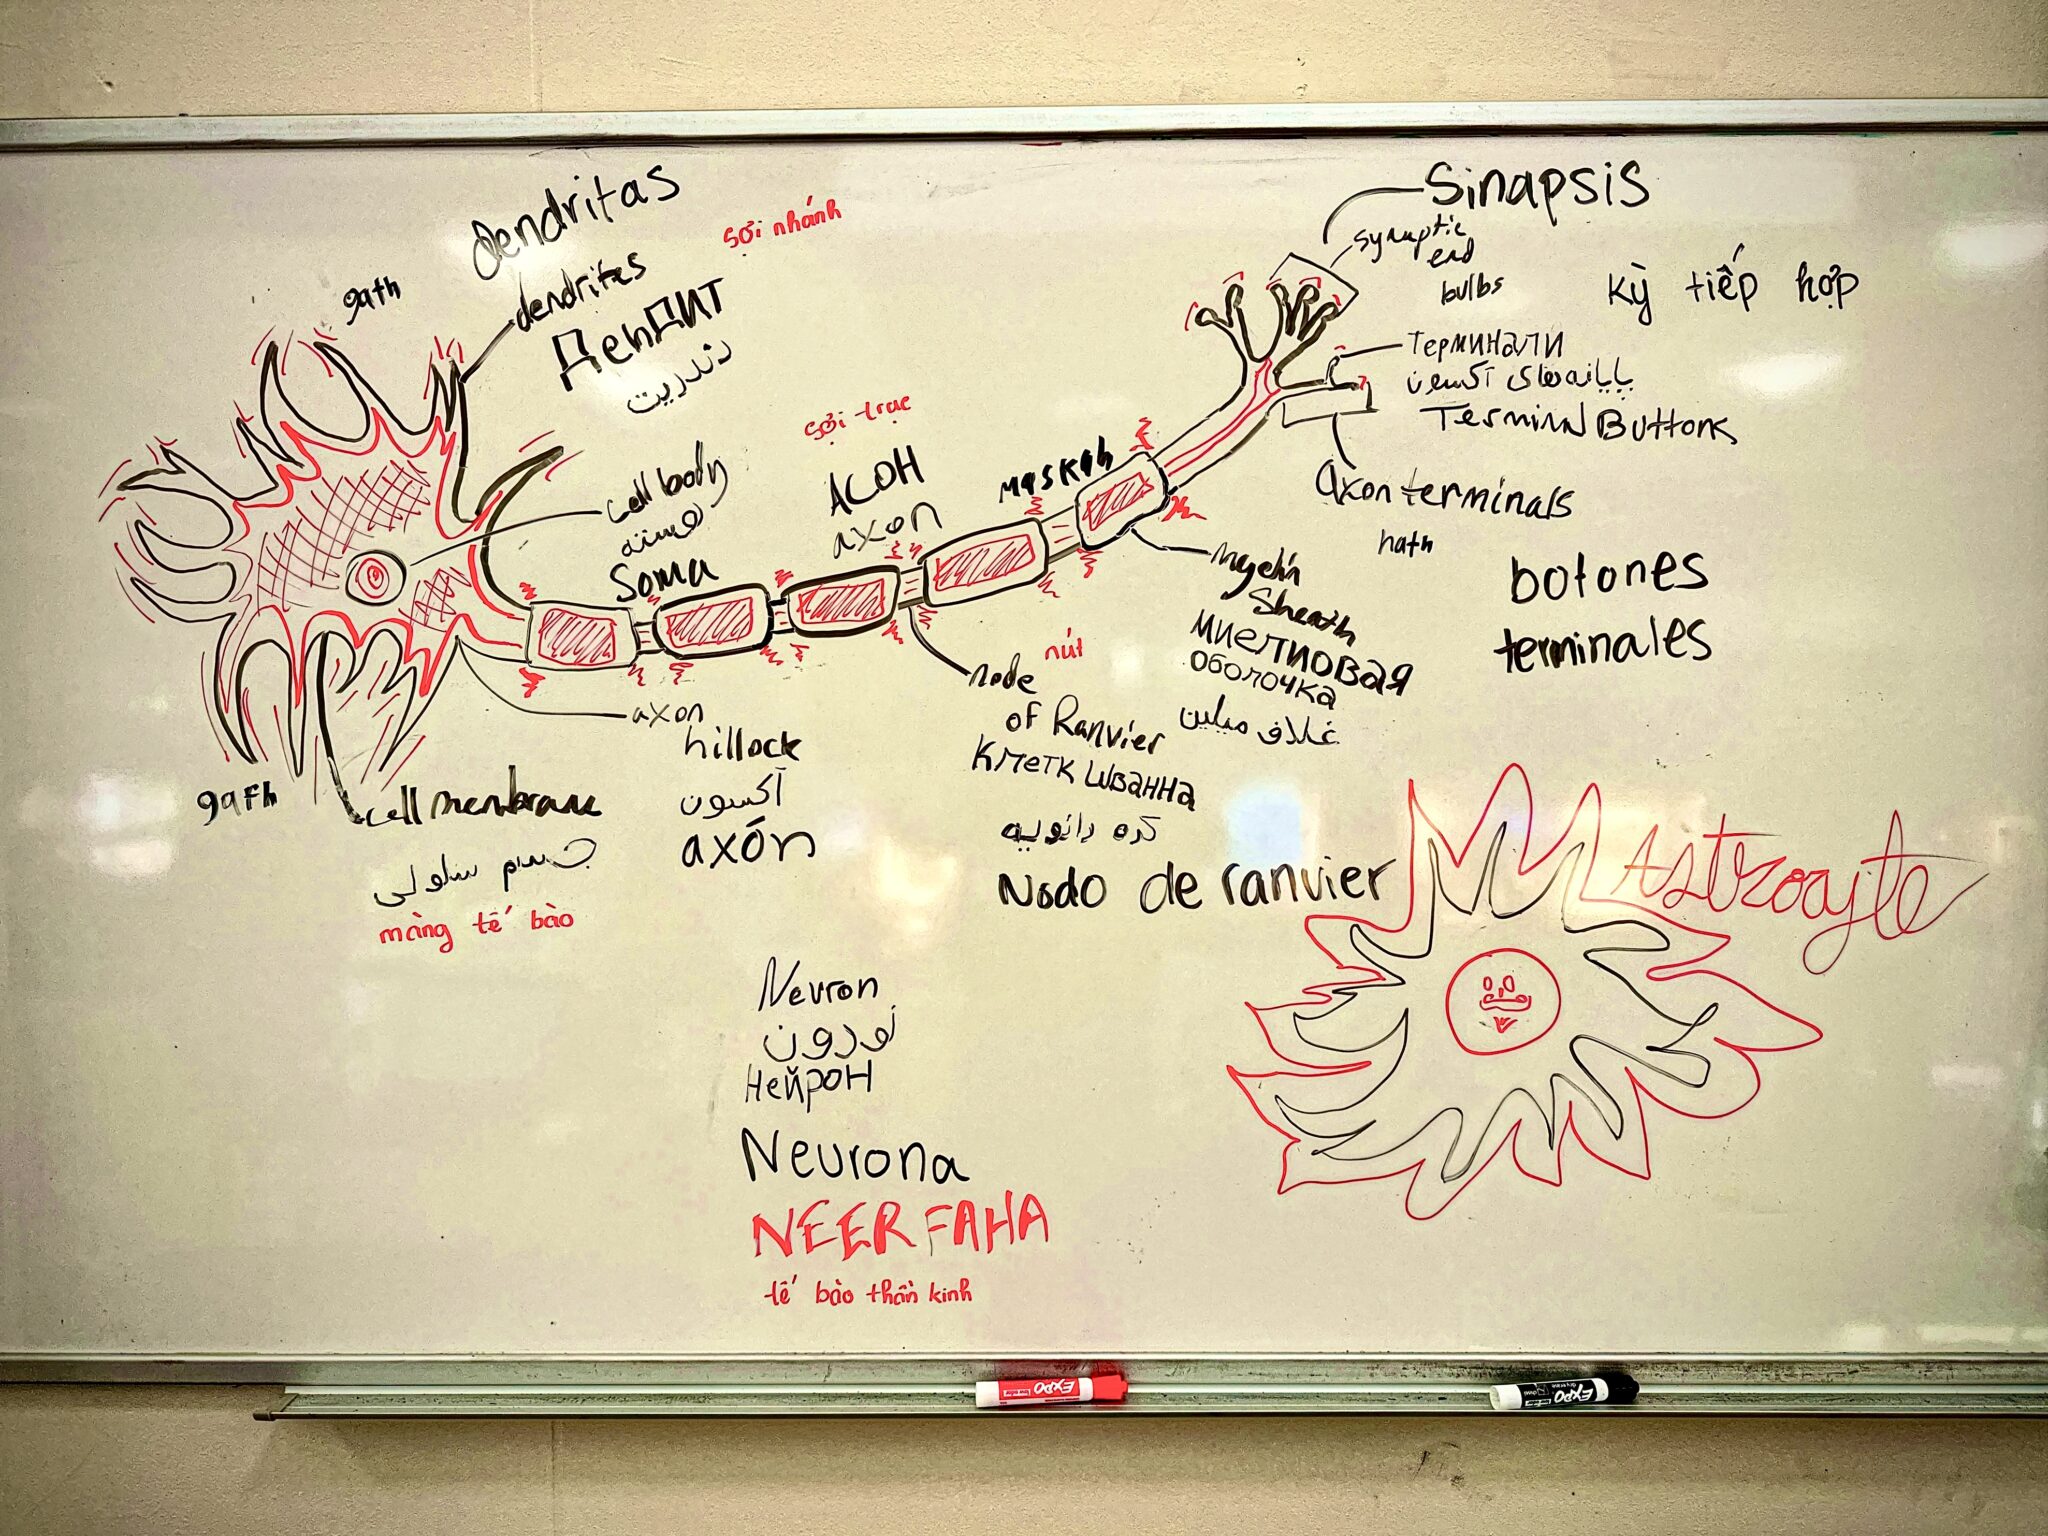 dendritas
sợi nhánh
gath
dendrites
ДенДИТ
دندریت
Sinapsis
synaptic
end
bulbs
kỳ tiếp hợp
Терминали
پایانه‌های آکسون
Terminal Buttons
axon terminals
hath
botones
terminales
cell body
هسته
Soma
sợi trục
АСОН
axon
maskah
myelin
Sheath
миелиновая
оболочка
غلاف میلین
node
nút
of Ranvier
Клетк шванна
گره رانویه
Nodo de ranvier
axon
hillock
آکسون
axón
gafh
cell membrane
جسم سلولی
màng tế bào
Astrocyte
Neuron
نورون
Нейрон
Neurona
NEERFAHA
tế bào thần kinh
EXPO
EXPO